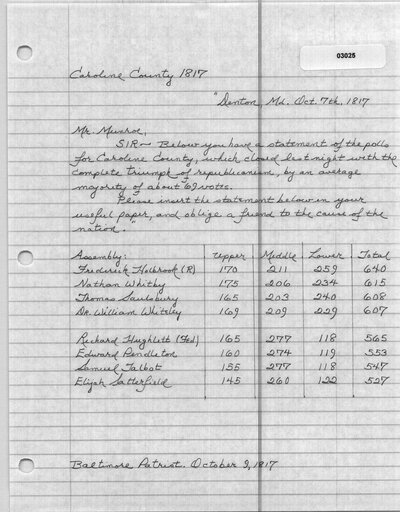 03025
Caroline County 1817
"Denton, Md. Oct. 7th, 1817
Mr. Munroe,
SIR~ Below you have a statement of the polls
for Caroline County, which closed last night with the
complete triumph of republicanism, by an average
majority of about 69 votes.
Please insert the statement below in your
useful paper, and oblige a friend to the cause of the
nation."
Assembly: Upper Middle Lower Total
Frederick Holbrook (R) 170 211 259 640
Nathan Whitby 175 206 234 615
Thomas Saulsbury 165 203 240 608
Dr. William Whiteley 169 209 229 607
Richard Hughlett (Fed) 165 277 118 565
Edward Pendleton 160 274 119 553
Samuel Talbot 155 277 118 547
Elijah Satterfield 145 260 122 527
Baltimore Patriot. October 9, 1817